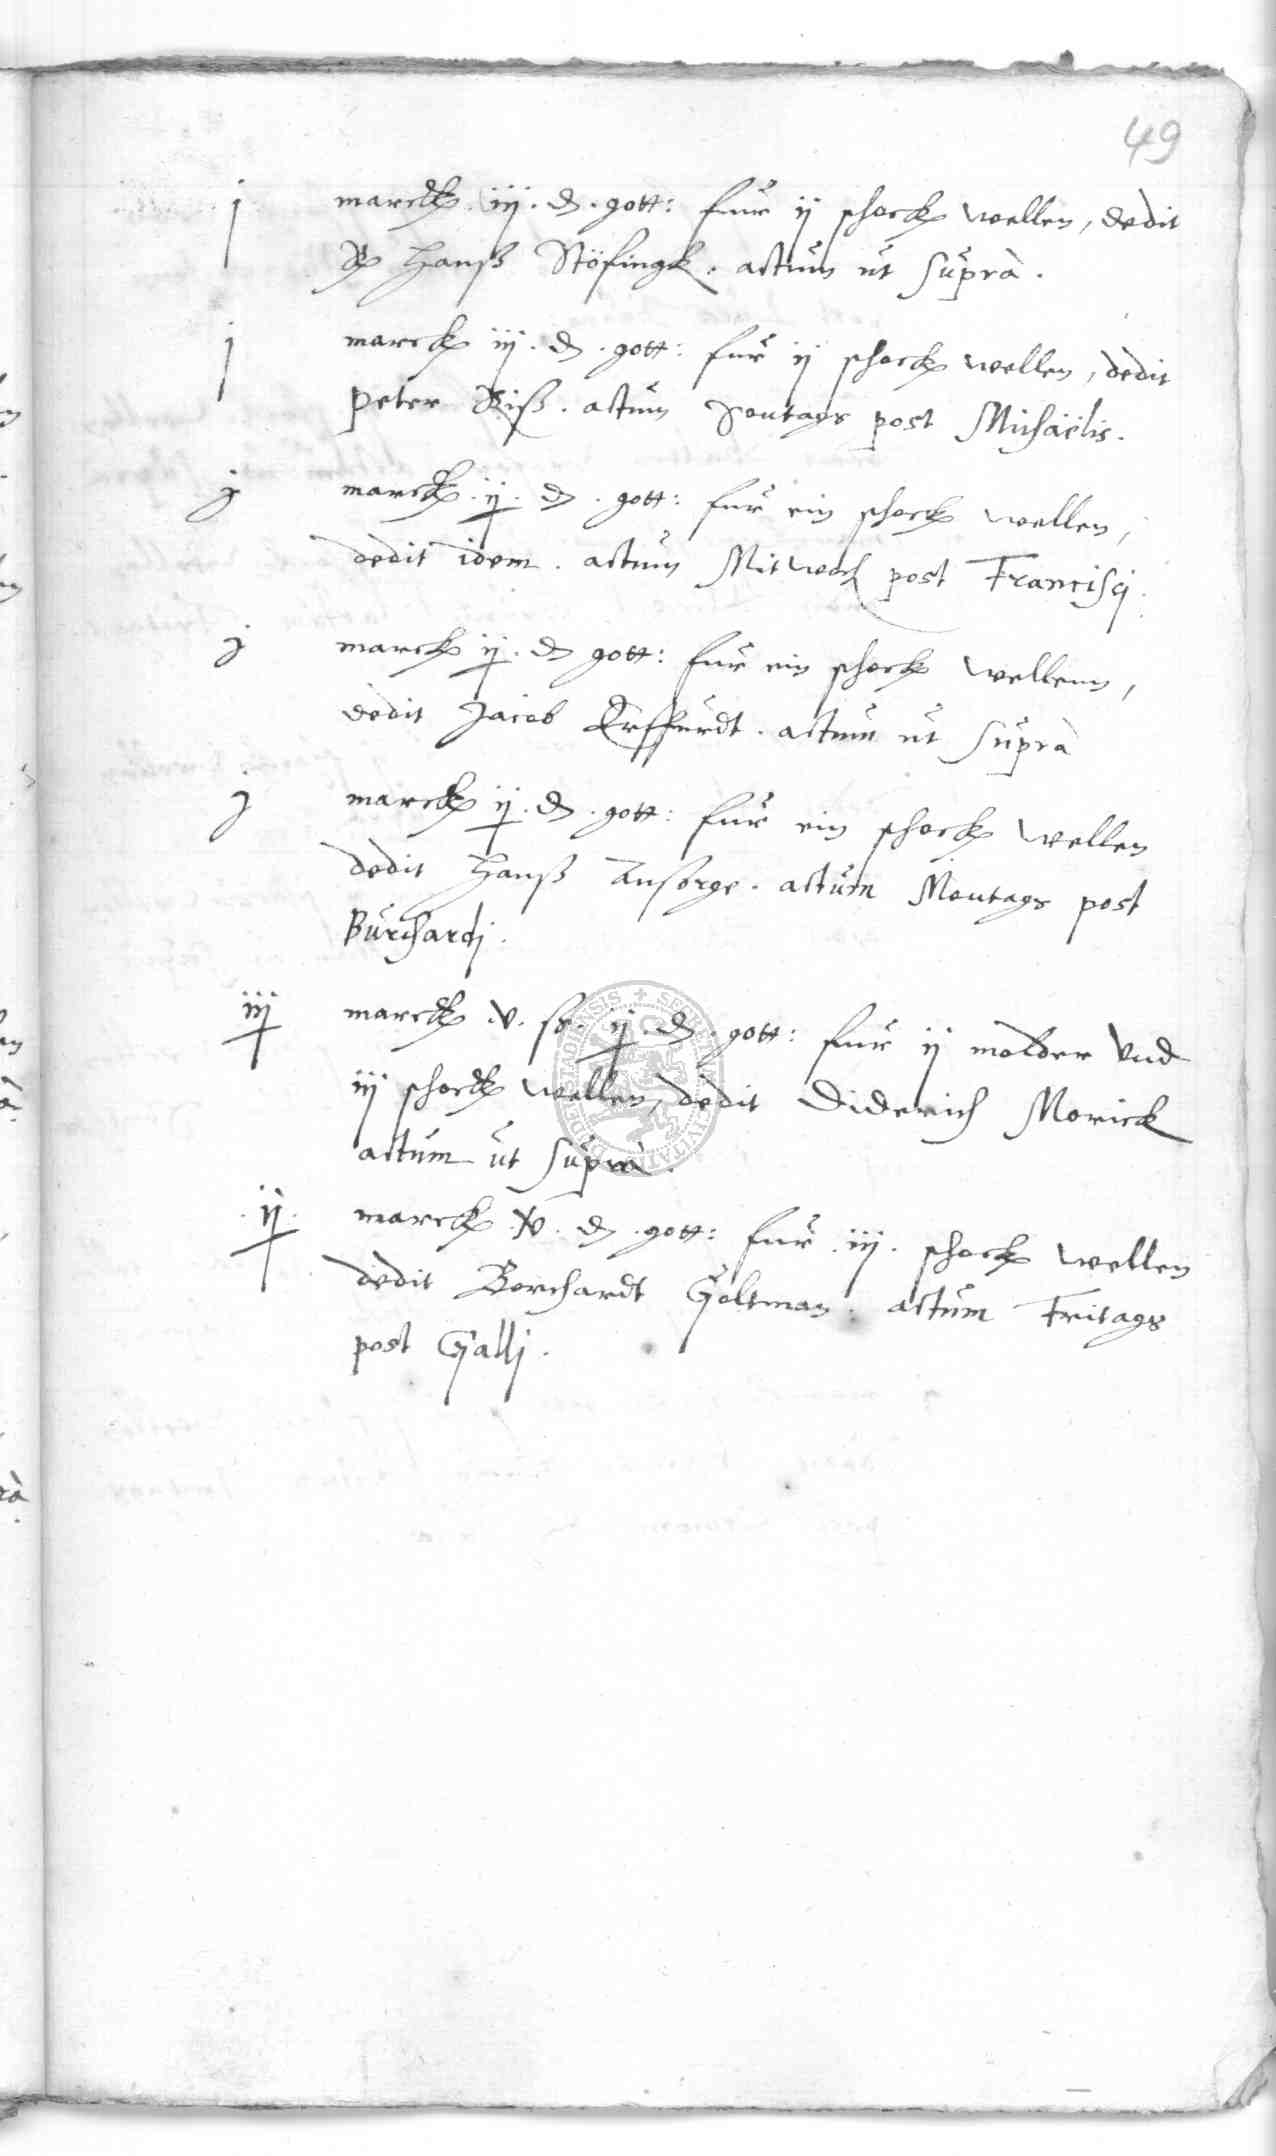 49
j marck iij ₰ gott: fur ij schock wellen, dedit
Hanß Stöfingk. actum ut suprà.
j marck iij. ₰. gott: fur ij schock wellen, dedit
Peter Riß. actum Sontags post Michaëlis.
j marck. ij. ₰. gott: fur ein schock wellen,
dedit idem. actum Mitwoch post Francisci.
j marck ij. ₰ gott: fur ein schock wellenn,
dedit Jacob Erffurdt. actum ut suprà
j marck ij. ₰. gott: fur ein schock wellen
dedit Hanß Ansorge. actum Montags post
Burchardi.
iij marck v. ß. ij. ₰. gott: fur ij molder vnd
iij schock wellen, dedit Diderich Morick
actum ut suprà.
.ij. marck .v. ₰ gott: fur .iij. schock wellen
dedit Borchardt Goltman. actum Fritags
post Galli.